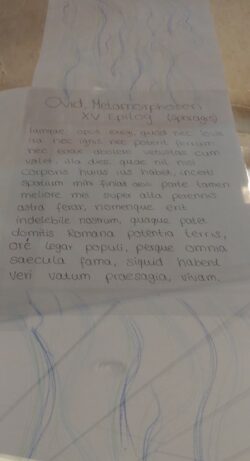 Ovid, Metamorphosen
XV Epilog (Sphragis)
Iamque opus exegi, quod nec Iovis
ira nec ignis nec poterit ferrum
nec edax abolere vetustas. cum
volet, illa dies, quae nil nisi
corporis huius ius habet, incerti
spatium mihi finiat aevi: parte tamen
meliore mei super alta perennis
astra ferar, nomenque erit
indelebile nostrum, quaque patet
domitis Romana potentia terris,
ore legar populi, perque omnia
saecula fama, siquid habent
veri vatum praesagia, vivam.